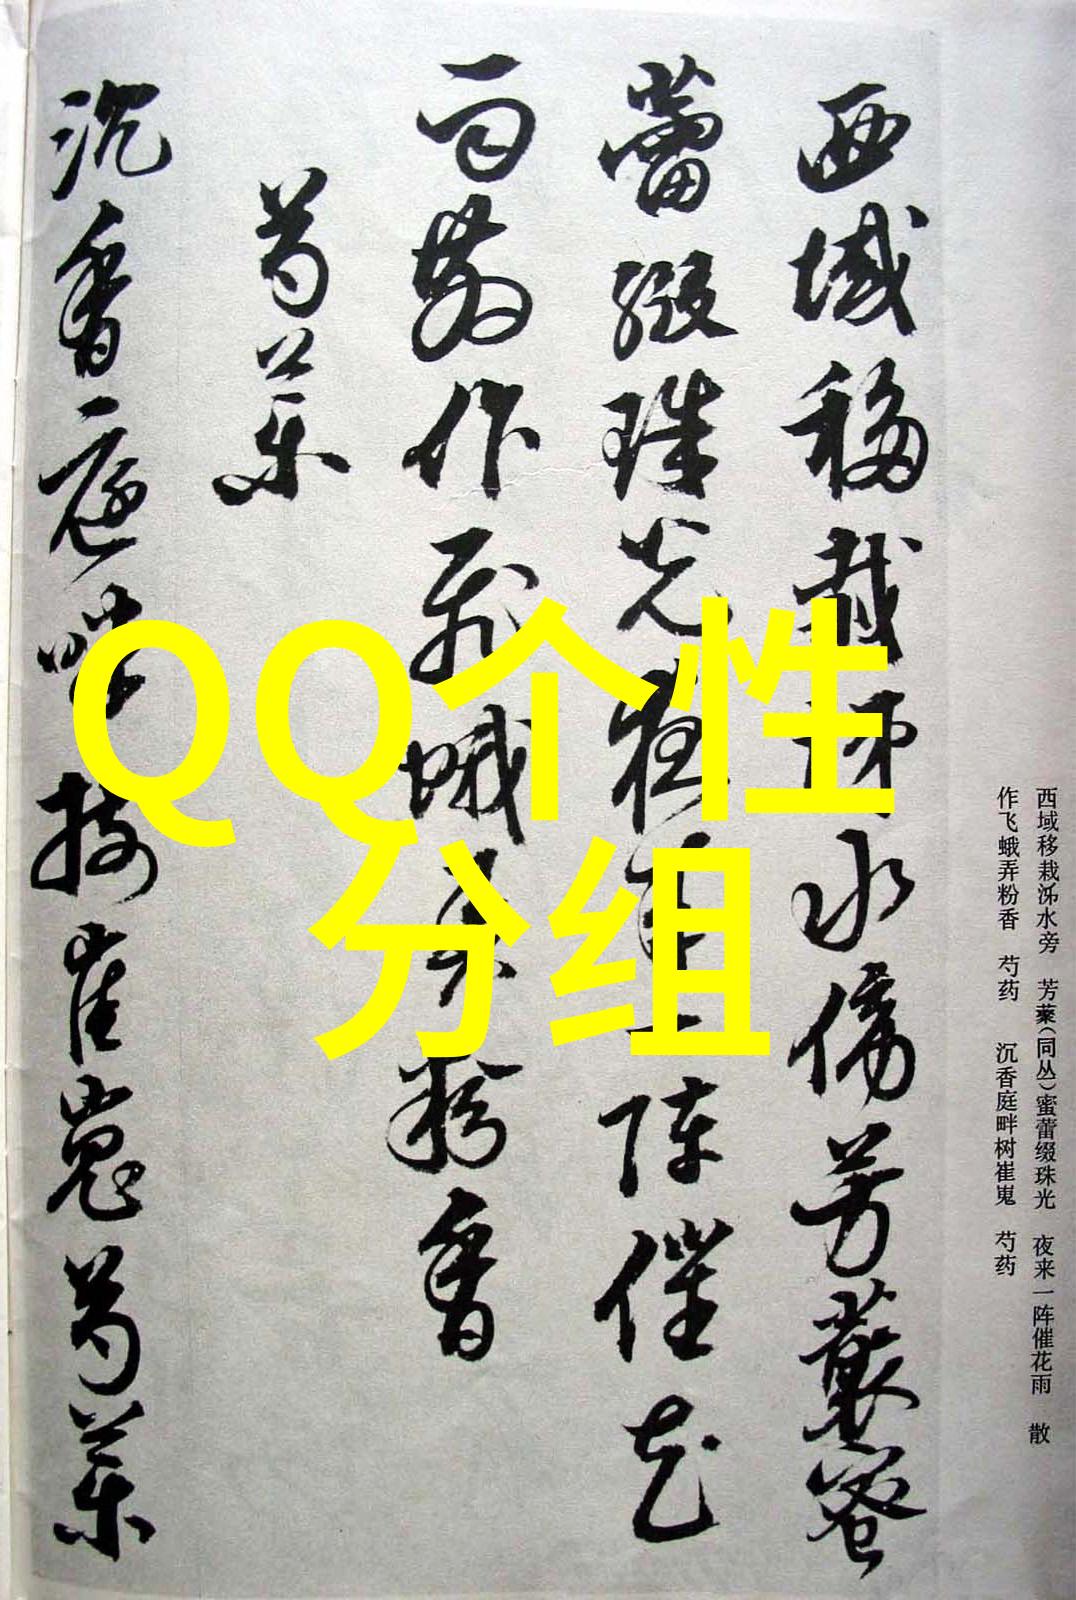 西域移栽泲水傍芳藂蜜
蕾缀珠光夜来一阵催花
雨散作飞蛾弄粉香
芍药
沉香庭畔树崔嵬芍药
QQ个性
分组
西域移栽泲水旁 芳藂(同丛)蜜蕾缀珠光 夜来一阵催花雨 散
作飞蛾弄粉香 芍药 沉香庭畔树崔嵬 芍药